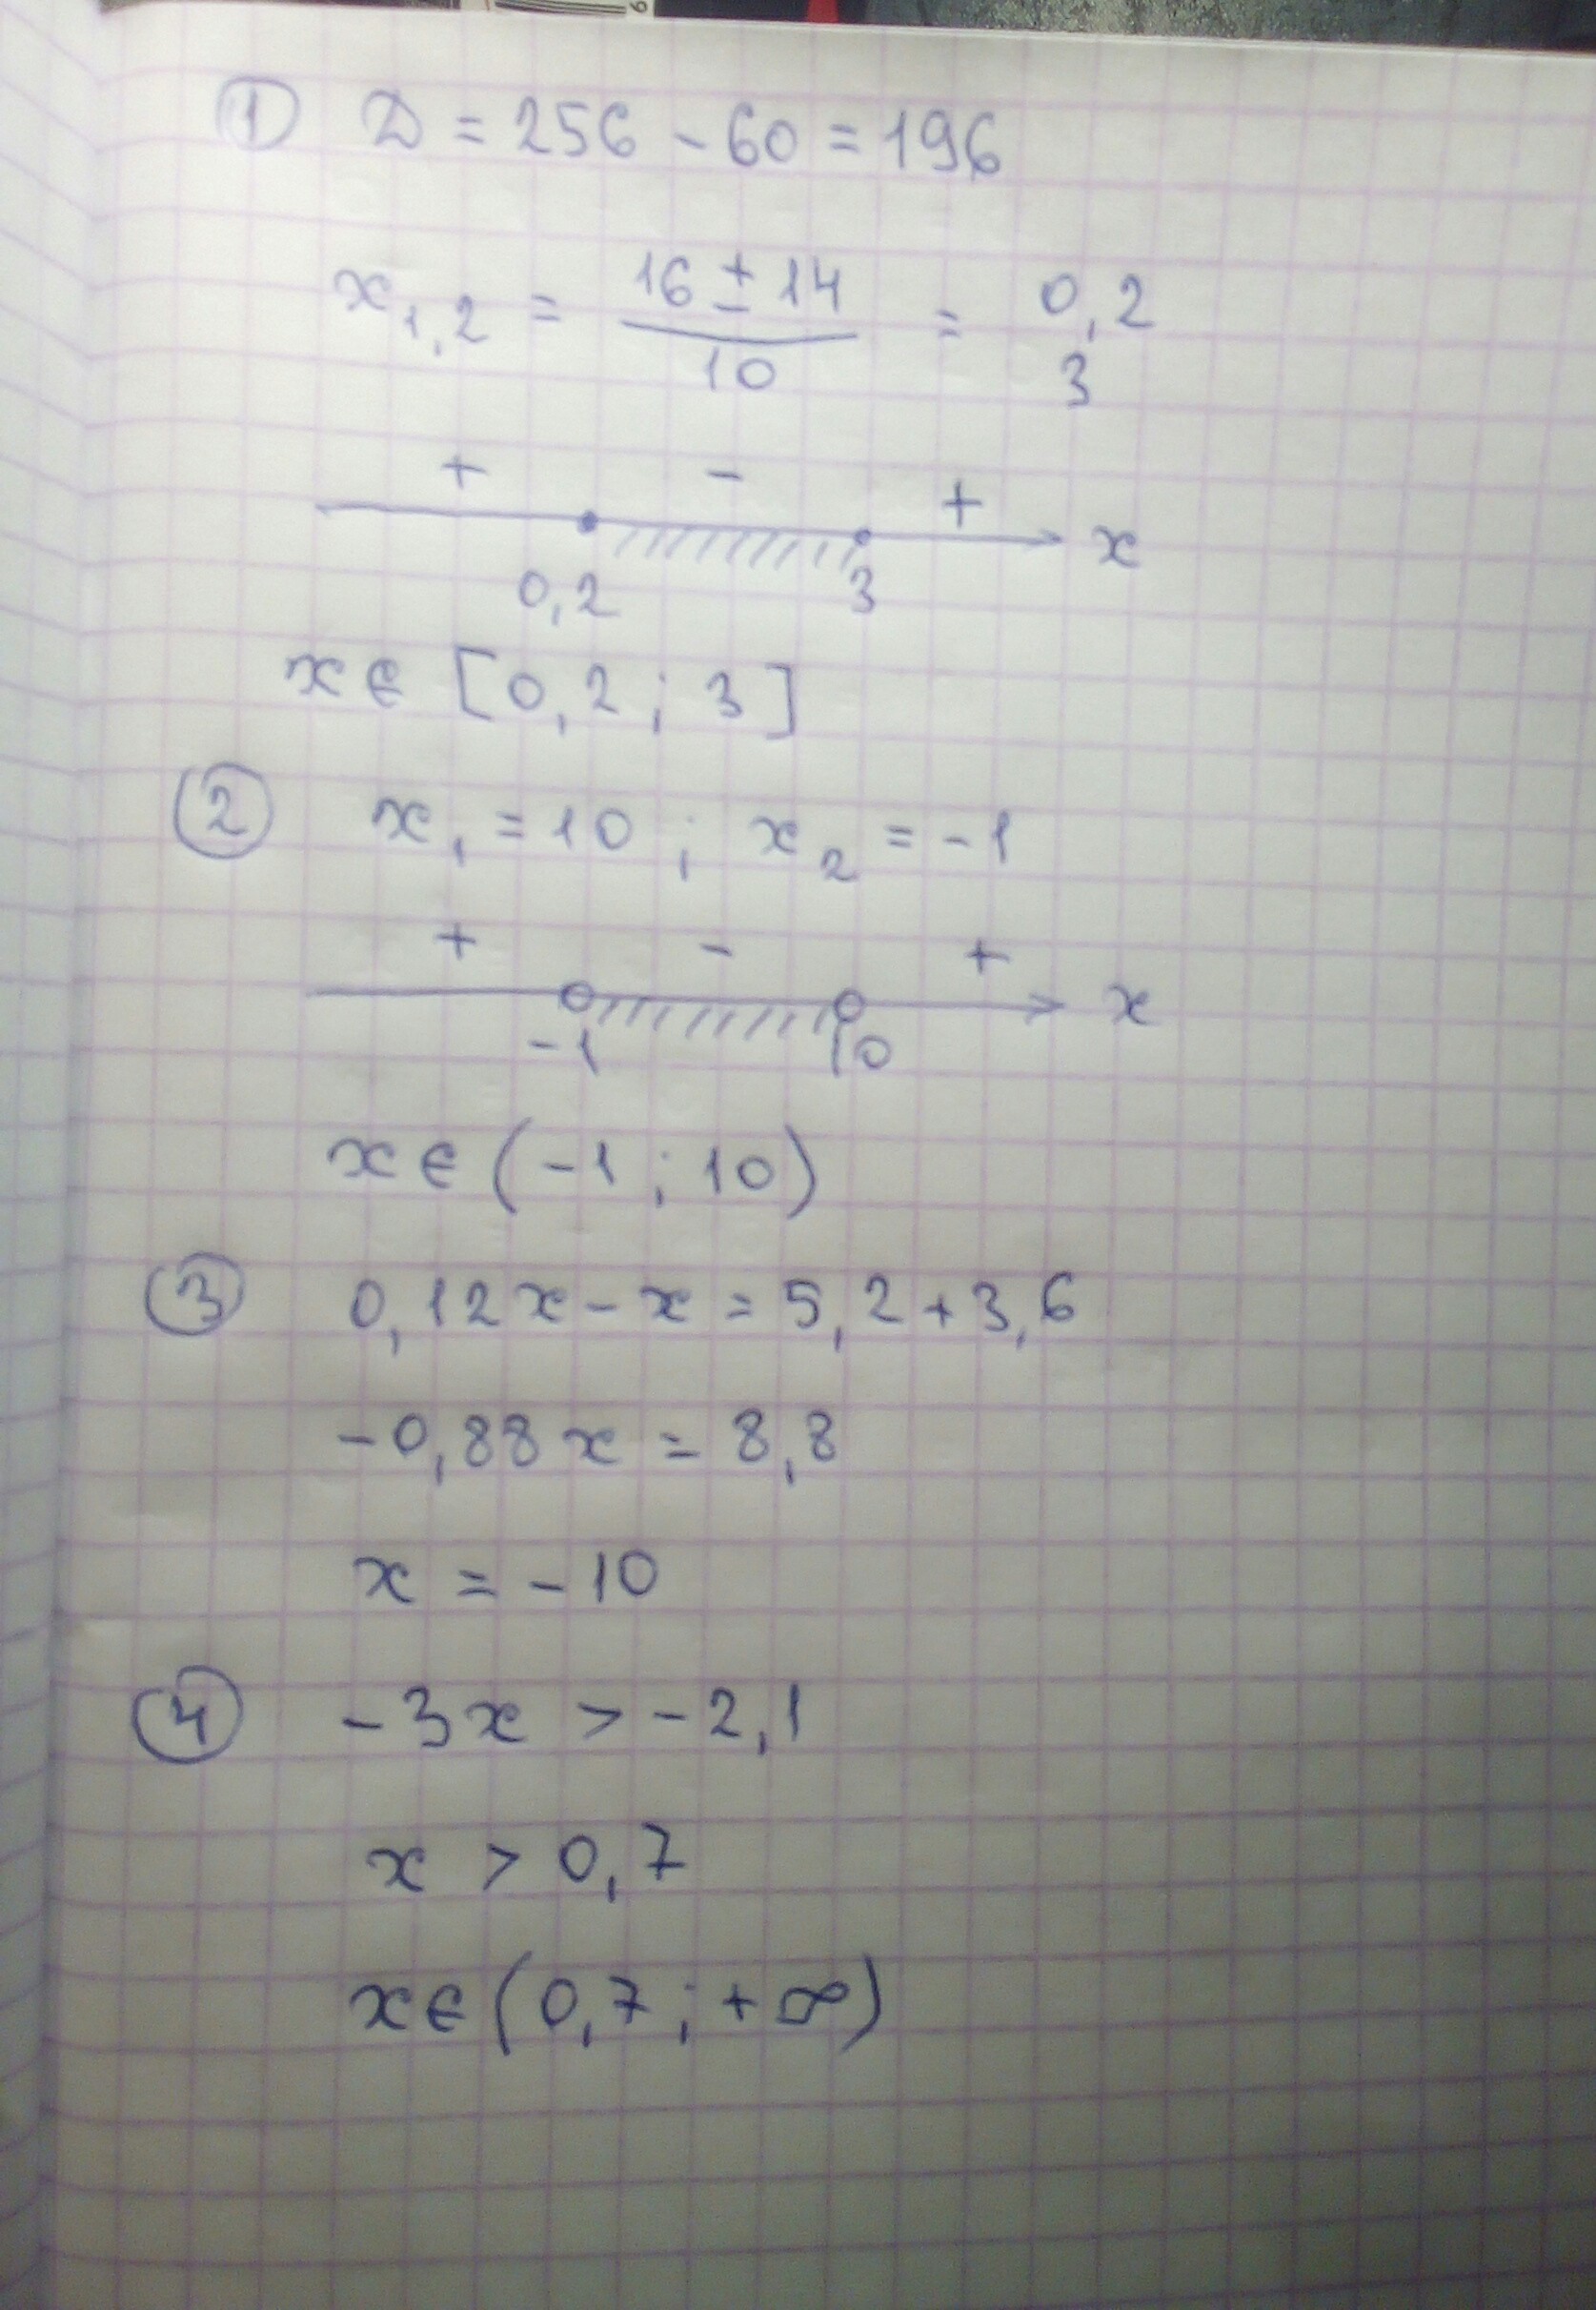 ① D = 256 - 60 = 196
x₁,₂ = (16 ± 14)/10 = 0,2
3
+ - +
x
0,2 3
x ∈ [0,2 ; 3]
② x₁ = 10 ; x₂ = -1
+ - +
x
-1 10
x ∈ (-1 ; 10)
③ 0,12x - x = 5,2 + 3,6
-0,88x = 8,8
x = -10
④ -3x > -2,1
x > 0,7
x ∈ (0,7 ; +∞)